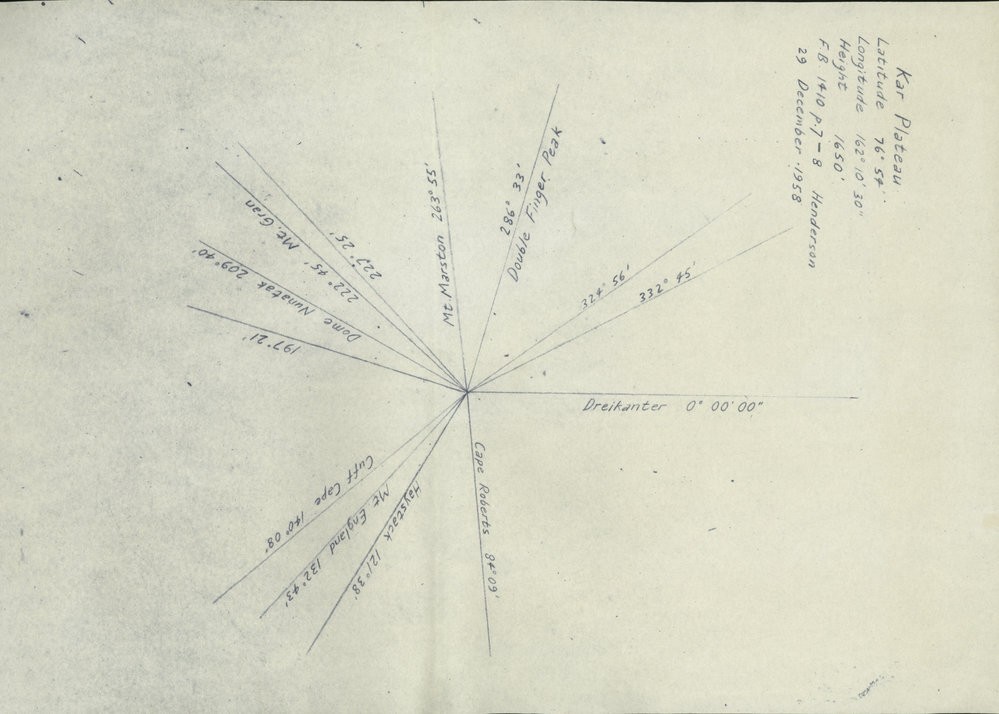 Kar Plateau
Latitude 76° 54'
Longitude 162° 10' 30"
Height 1650'
F.B. 1410 p.7-8 Henderson
29 December 1958
Dreikanter 0° 00' 00"
Cape Roberts 84° 09'
Haystack 121° 38'
Mt England 132° 43'
Cuff Cape 140° 08'
197° 21'
Dome Nunatak 209° 40'
Mt. Gran 222° 45'
227° 25'
Mt Marston 263° 55'
Double Finger Peak
286° 33'
324° 56'
332° 45'